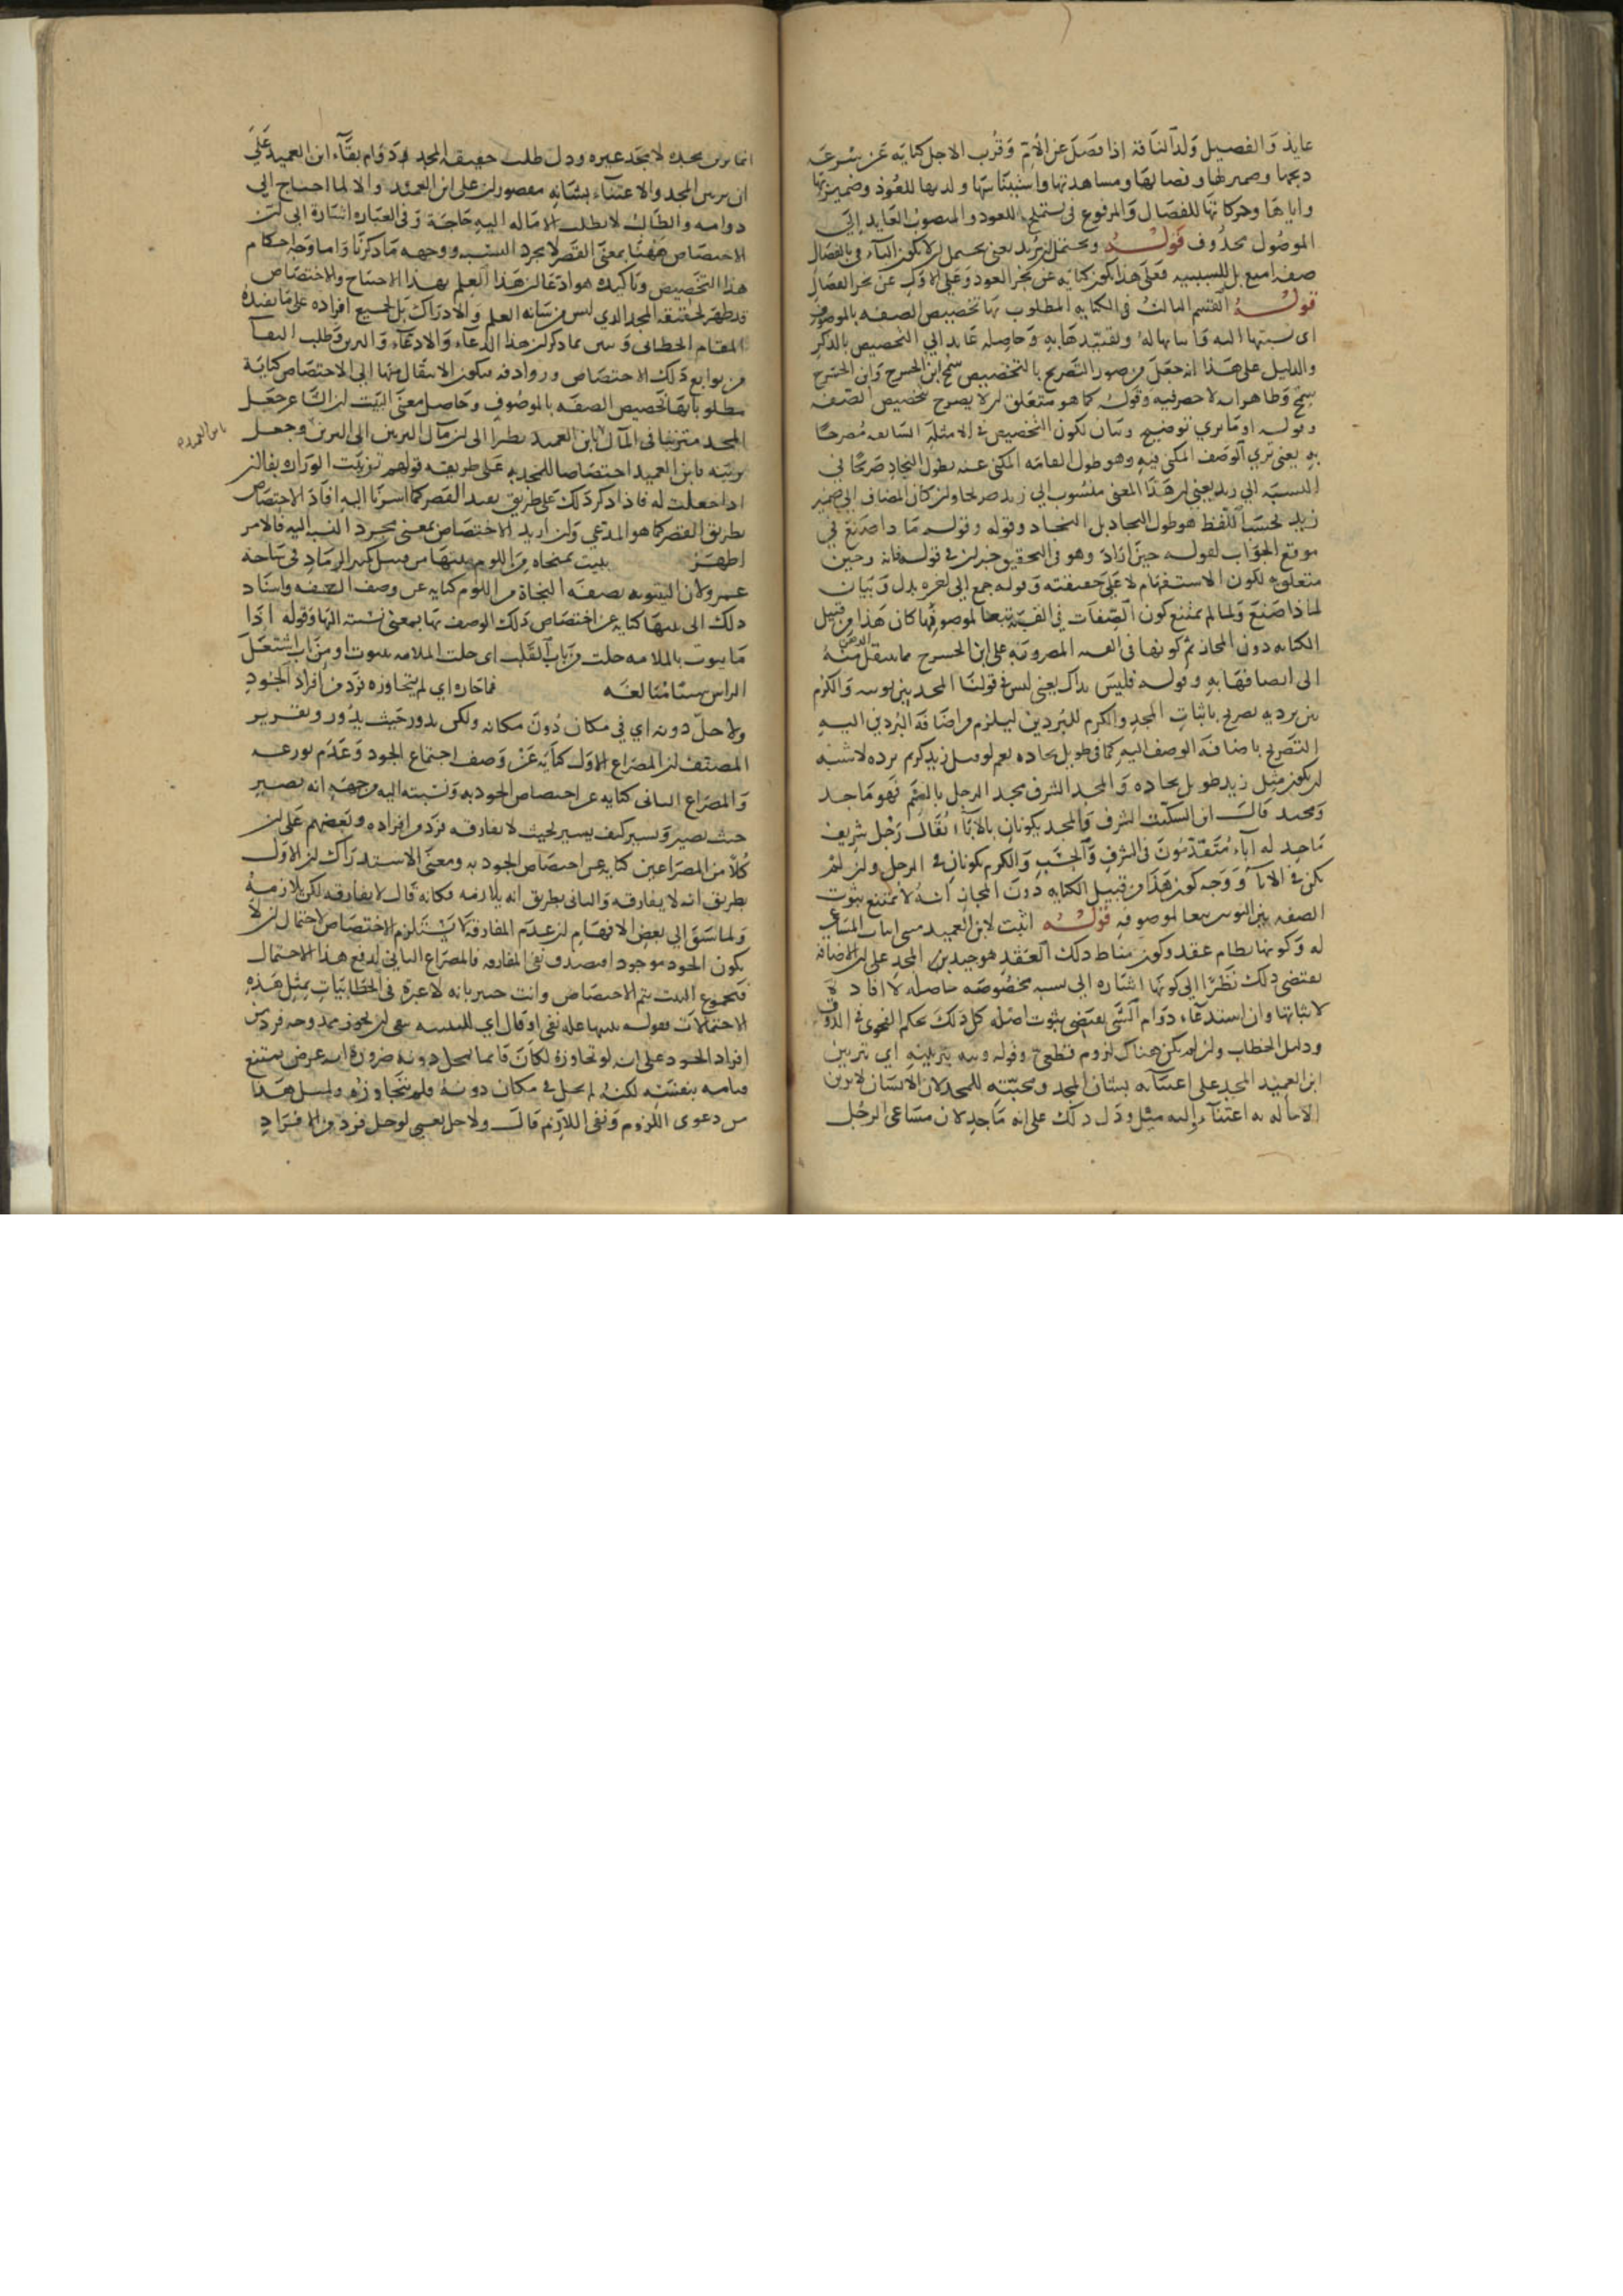 عايذ والفصيل ولد الناقة اذا فصل عن الام وقرب الاجل كناية عن سرعة
ذبحها وضمير لها وفصالها ومساهدتها واستيناسها ولديها للعوذ وضمير بها
واياها وحركاتها للفصال والمرفوع في يستملح للعوذ والمنصوب العايد الى
الموصول محذوف قوله ويحتمل ان يريد يعني يحتمل ان لا يكون الباء في بالفصال
صفة امتع بل للسببية فعلى هذا يكون كناية عن نحر العوذ وعلى الاول عن نحر الفصال
قوله القسم الثالث في الكناية المطلوب بها تخصيص الصفة بالموصوف
اي نسبتها اليه واثباتها له وتقييدها به وحاصله عايد الى التخصيص بالذكر
والدليل على هذا انه جعل من صور التصريح بالتخصيص سمح ابن الحشرج وابن الحشرج
سمح وظاهر انه لا حصر فيه وقوله كما هو متعلق لان لا يصرح بتخصيص الصفة
وقوله او ما ترى توضيح وبيان لكون التخصيص في الامثلة السابقة مصرحا
به يعني ترى الوصف المكنى فيه وهو طول القامة المكنى عنه بطول النجاد صريحا في
النسبة الى زيد يعني ان هذا المعنى منسوب الى زيد صريحا وان كان المضاف الى ضمير
زيد بحسب اللفظ هو طول النجاد بل النجاد وقوله وقوله ماذا صنع في
موقع الجواب لقوله حين اراد وهو في التحقيق خبر ان في قوله فانه وحين
متعلق به لكون الاستفهام لا على حقيقته وقوله جمع الى اخره بدل وبيان
لماذا صنع ولما لم يمتنع كون الصفات في القبة تبعا لموصوفها كان هذا من قبيل
الكناية دون المجاز ثم كونها في القبة المضروبة على ابن الحشرج مما ينتقل منه الذهن
الى اتصافه بها وقوله فليس بذاك يعني ليس في قولنا المجد بين ثوبيه والكرم
بين برديه تصريح باثبات المجد والكرم للبردين ليلزم من اضافة البردين اليه
التصريح باضافة الوصف اليه كما في طويل نجاده نعم لو قيل زيد كريم برده لاشبه
ان يكون مثل زيد طويل نجاده والمجد الشرف مجد الرجل بالضم فهو ماجد
ومجيد قال ابن السكيت الشرف والمجد يكونان بالاباء يقال رجل شريف
ماجد له اباء متقدمون في الشرف والحسب والكرم يكونان في الرجل وان لم
يكن في الاباء ووجه كون هذا من قبيل الكناية دون المجاز انه لا يمتنع ثبوت
الصفة بين الثوبين تبعا لموصوفه قوله اثبت لابن العميد مبنى اثبات المساعي
له وكونها نظام عقد وكون مناط ذلك العقد هو جيد بن المجد على ان الاضافة
تقتضي ذلك نظرا الى كونها اشارة الى نسبة مخصوصة حاصلة لا افادة
لاثباتها وان استدعاء دوام الشي يقتضي ثبوت اصله كل ذلك بحكم الفحوى في الذوق
ودليل الخطاب وان لم يكن هناك لزوم قطعي وقوله ونبه بتزيينه اي تزيين
ابن العميد المجد على اعتنائه بشان المجد ومحبته للمجد لان الانسان لا يزين
الا ما له به اعتناء واليه ميل ودل ذلك على انه ماجد لان مساعي الرجل
انما يزين مجده لا مجد غيره ودل طلب حقيقة المجد دوام بقاء ابن العميد على
ان تزيين المجد والاعتناء بشانه مقصور ان على ابن العميد والا لما احتاج الى
دوامه والطالب لا يطلب الا ما له اليه حاجة وفي العبارة اشارة الى ان
الاختصاص ههنا بمعنى القصر لا مجرد النسبة ووجهه ما ذكرنا واما وجه احكام
هذا التخصيص وتاكيده هو ادعا ان هذا العلم بهذا الاحتياج والاختصاص
قد ظهر لحقيقة المجد الذي ليس من شانه العلم والادراك بل لجميع افراده على ما يفيده
المقام الخطابي وتبين مما ذكر ان هذا الدعاء والادعاء والتزيين وطلب البقاء
من توابع ذلك الاختصاص وروادفه فيكون الانتقال منها الى الاختصاص كناية
مطلوبا بها تخصيص الصفة بالموصوف وحاصل معنى البيت ان الشاعر جعل
المجد متزينا في المآل بابن العميد نظرا الى ان مآل التزيين الى التزين وجعل
تزينه بابن العميد اختصاصا للمجد به على طريقة قولهم تزينت الوزارة بفلان
اذا جعلت له فاذا ذكر ذلك على طريق يفيد القصر كما اشرنا اليه افاد الاختصاص
بطريق القصر كما هو المدعي وان اريد الاختصاص بمعنى مجرد النسبة اليه فالامر
اظهر يبيت بمنجاة من اللوم بيتها من قبيل كثير الرماد في ساحة
عمرو لان البيتوتة بصفة النجاة من اللوم كناية عن وصف العفة واسناد
ذلك الى بيتها كناية عن اختصاص ذلك الوصف بها بمعنى نسبته اليها وقوله اذا
ما بيوت بالملامة حلت من باب القلب اي حلت الملامة بيوت او من باب اشتعل
الراس شيبا مبالغة فما جازه اي لم يتجاوزه فرد من افراد الجود
ولا حل دونه اي في مكان دون مكانه ولكن يدور حيث يدور وتقرير
المصنف ان المصراع الاول كناية عن وصف اجتماع الجود وعدم توزعه
والمصراع الثاني كناية عن اختصاص الجود به ونسبته اليه من جهة انه يصير
حيث يصير ويسير كيف يسير بحيث لا يفارقه فرد من افراده وبعضهم على ان
كلا من المصراعين كناية عن اختصاص الجود به ومعنى الاستدراك ان الاول
بطريق انه لا يفارقه والثاني بطريق انه يلازمه فكانه قال لا يفارقه لكن يلازمه
ولما سبق الى بعض الافهام ان عدم المفارقة لا يستلزم الاختصاص لاحتمال ان لا
يكون الجود موجودا فيصدق نفي المفارقة فالمصراع الثاني لدفع هذا الاحتمال
فبمجموع البيت يتم الاختصاص وانت خبير بانه لا عبرة في الخطابيات بمثل هذه
الاحتمالات
افراد الجود على انه لو تجاوزه لكان قائما بمحل دونه ضرورة انه عرض يمتنع
قيامه بنفسه لكنه لم يحل في مكان دونه فلم يتجاوزه ولمثل هذا
من دعوى اللزوم ونفي اللازم قال ولا حل يعني لو حل فرد من الافراد